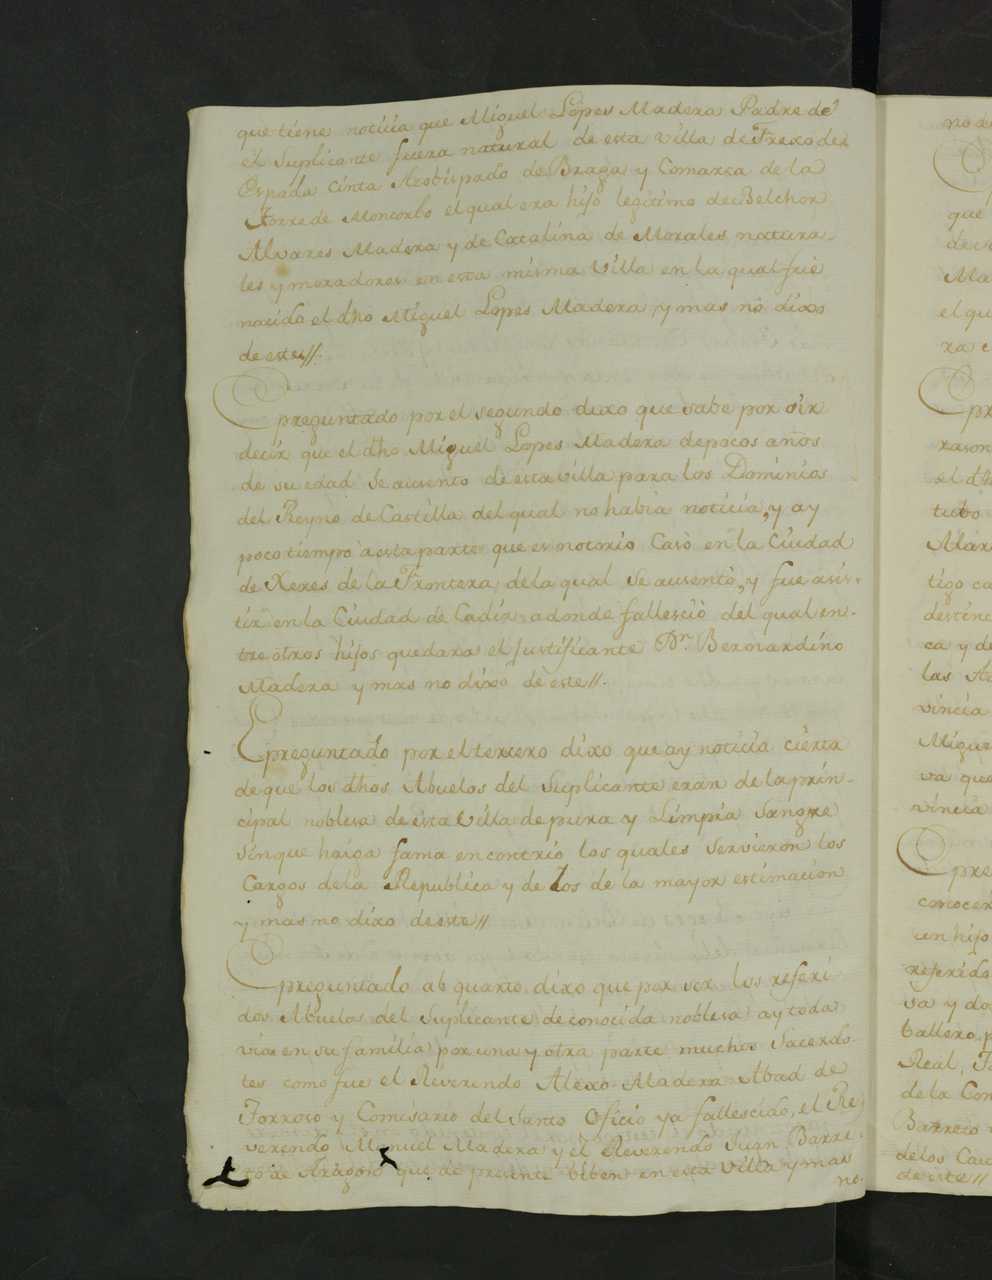 que tiene noticia que Miguel Lopes Madera Padre de
el Suplicante fuera natural de esta villa de Frexo de
Espada Cinta Arobispado de Braga y Comarca de la
Torre de Moncorbo el qual era hijo legitimo de Belchor
Alvares Madera y de Catalina de Morales natura-
les y moradores en esta misma Villa en la qual fue
nacido el dho Miguel Lopes Madera, y mas no dixo
de este//.
E preguntado por el segundo dixo que sabe por oir
decir que el dho Miguel Lopes Madera de pocos años
de su edad se ausento de esta villa para los Dominios
del Reyno de Castilla del qual no habia noticia, y ay
poco tiempo a esta parte que es notorio Casò en la Ciudad
de Xeres de la Frontera, de la qual se ausentò, y fue asis-
tir en la Ciudad de Cadix adonde falleciò del qual en-
tre otros hijos quedara el Justificante Dn. Bernardino
Madera y mas no dixo de este//.
E preguntado por el tercero dixo que ay noticia cierta
de que los dhos Abuelos del Suplicante eran de la prin-
cipal noblesa de esta Villa de pura y Limpia Sangre
sin que haiga fama en contrio los quales servieron los
Cargos de la Republica y de los de la mayor estimacion
y mas no dixo de este//
E preguntado ab quarto dixo que por ser los referi
dos Abuelos del Suplicante de conocida noblesa ay toda
via en su familia por una y otra parte muchos Sacerdo-
tes como fue el Reverendo Alexo Madera Abad de
Forrojo y Comisario del Santo Oficio ya fallescido, el Re
verendo Manuel Madera y el Reverendo Juan Barre-
to de Aragon que de presente biben en esta villa y mas
no.
no
que
de
Ma
el qu
ra
pr
rason
el dh
tubo
Alar
tigo ca
destin
ca y de
las
vincia
Migue
va que
vincia
E pre
conocer
un hijo
referido
sa y do
ballero
Real,
de la Con
Barreto
de los Car
de este//